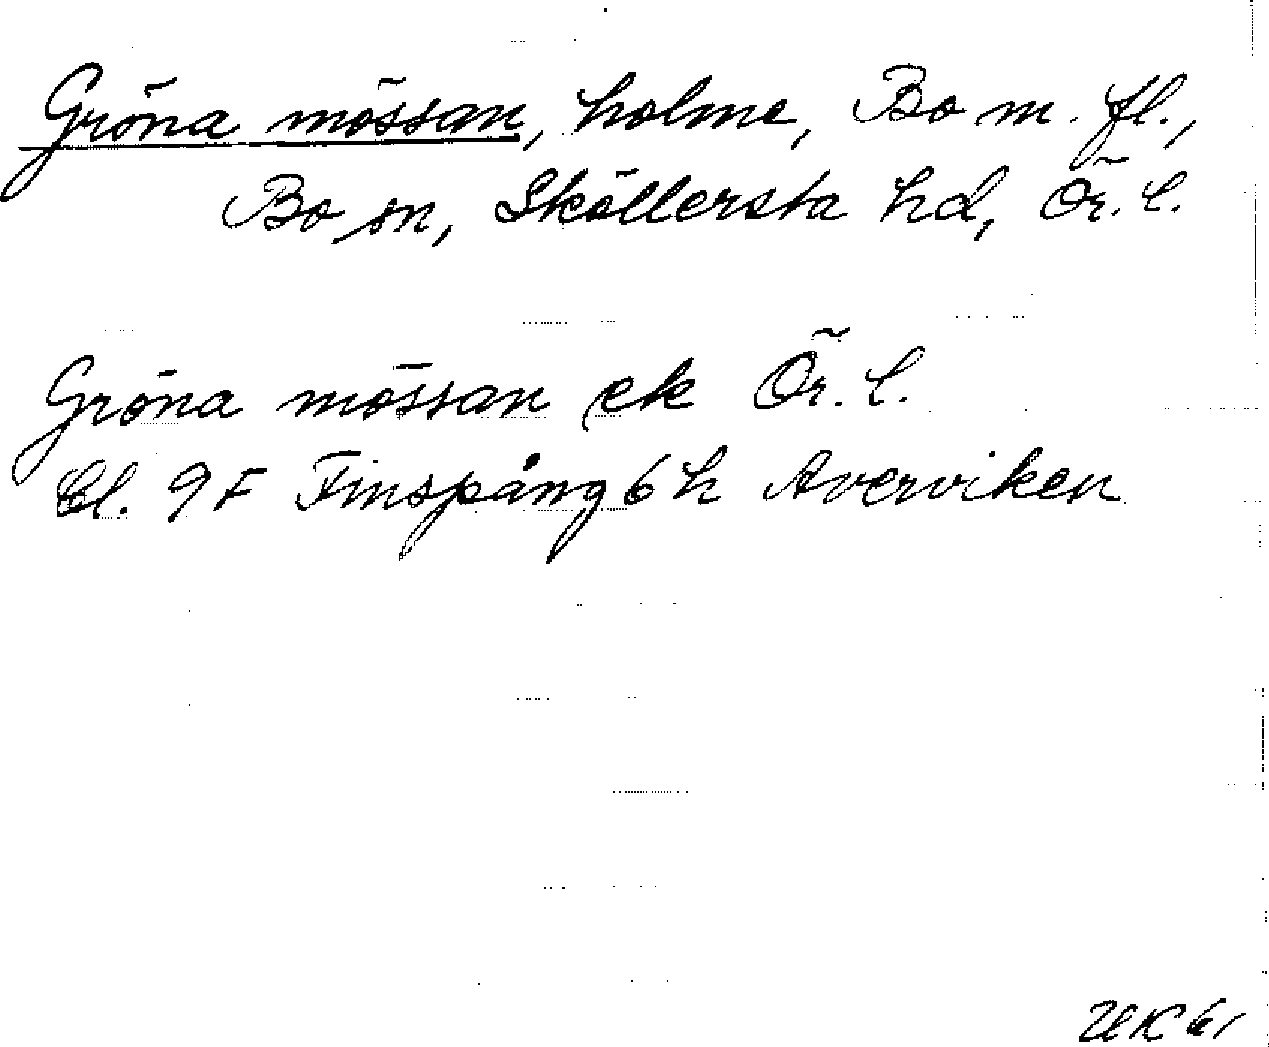 Gröna mössan, holme, Bo m. fl.,
Bo sn, Sköllersta hd, Ör. l.
Gröna mössan ek Ör. l.
Bl. 9F Finspång 6h Averviken